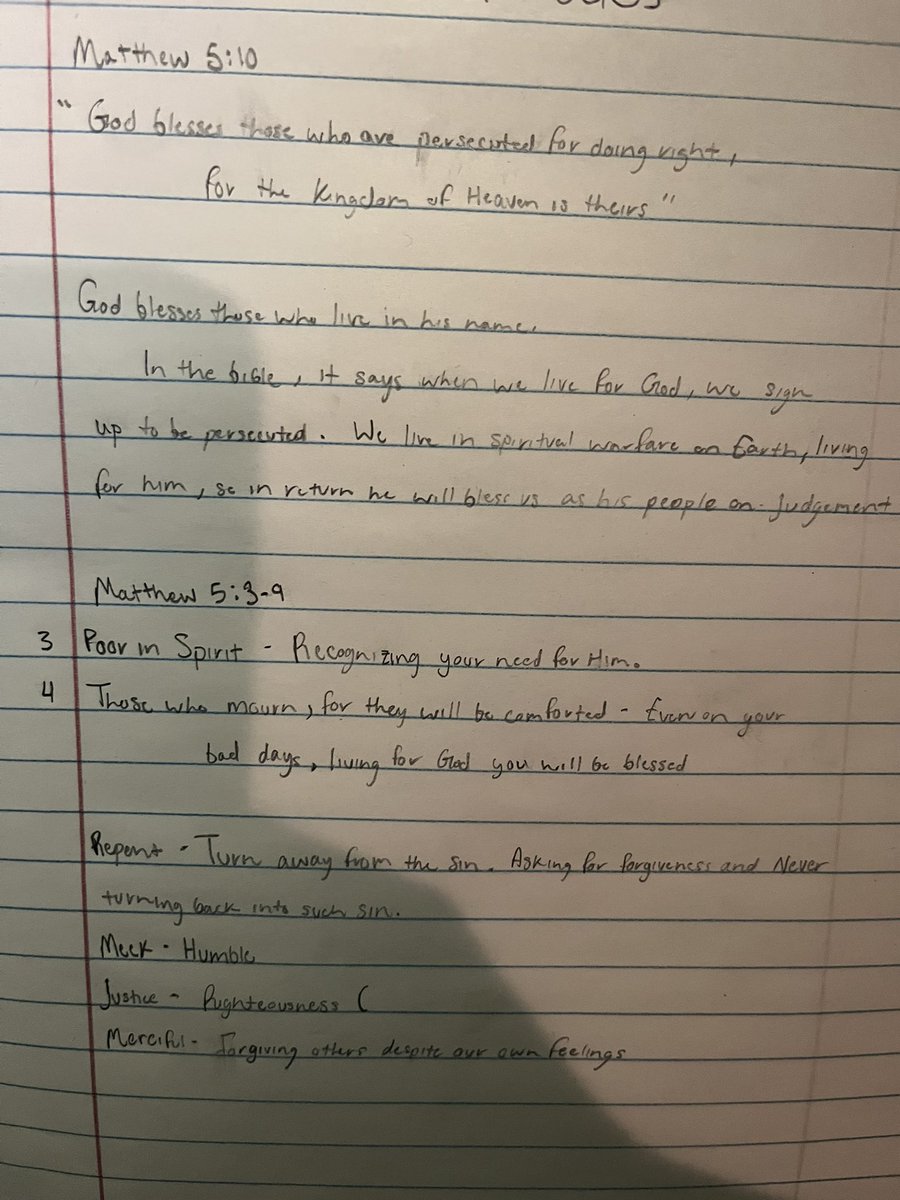 Matthew 5:10
" God blesses those who are persecuted for doing right,
for the Kingdom of Heaven is theirs "
God blesses those who live in his name.
In the bible, it says when we live for God, we sign
up to be persecuted. We live in spiritual warfare on Earth, living
for him, so in return he will bless us as his people on judgement
Matthew 5:3-9
3 Poor in Spirit - Recognizing your need for Him.
4 Those who mourn, for they will be comforted - Even on your
bad days, living for God you will be blessed
Repent - Turn away from the sin. Asking for forgiveness and Never
turning back into such sin.
Meek - Humble
Justice - Righteousness (
Merciful - Forgiving others despite our own feelings